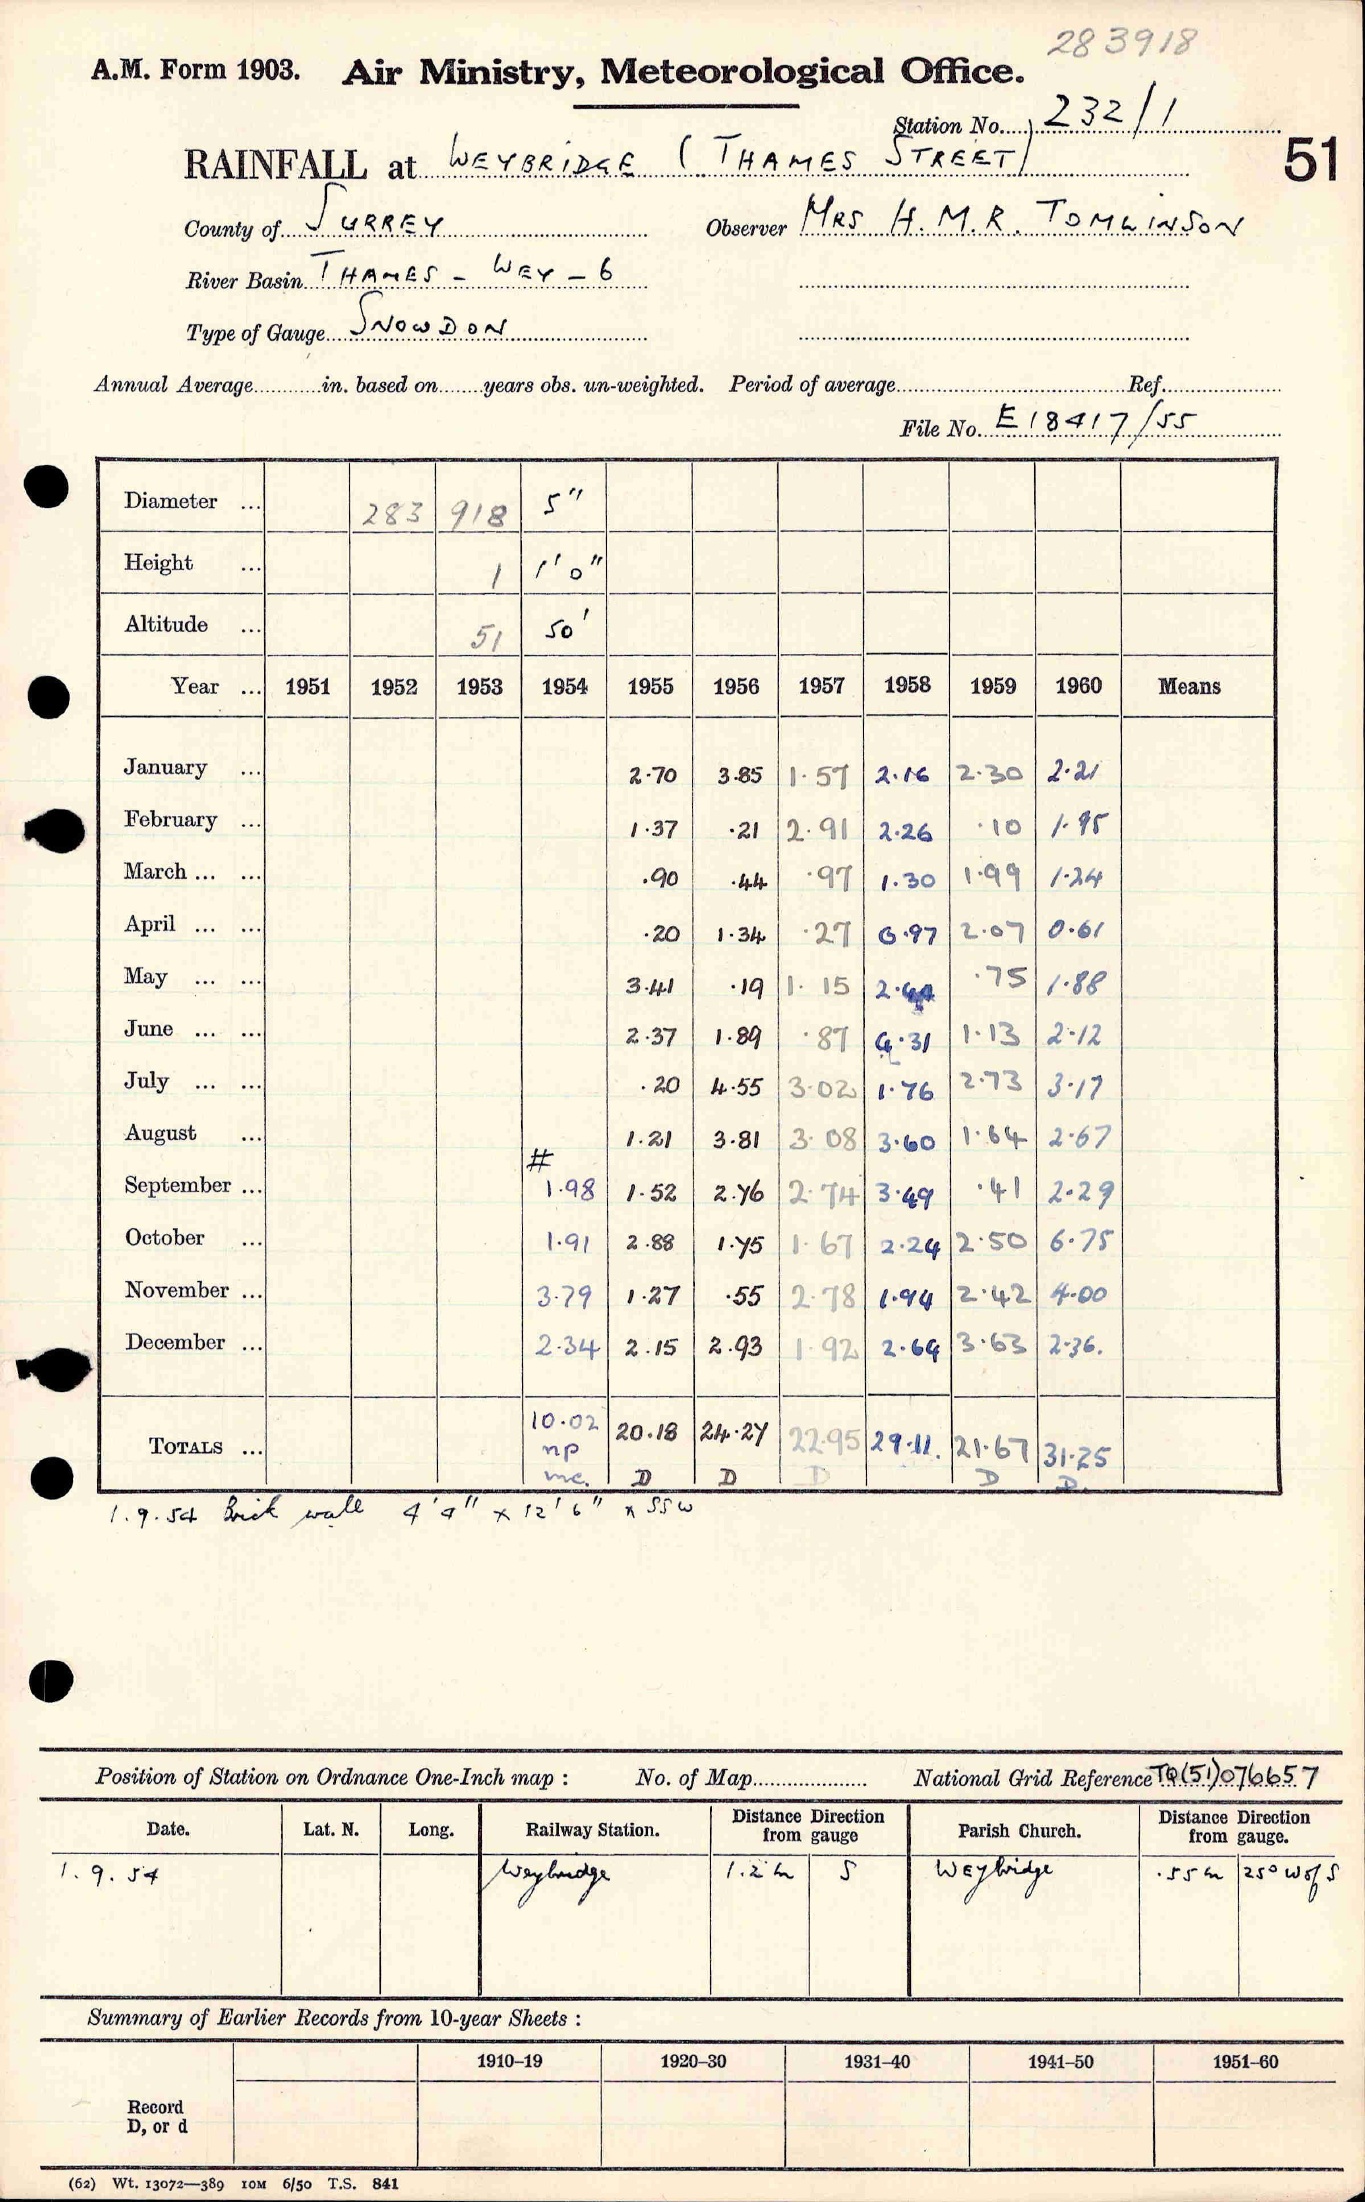 283918
A.M. Form 1903. Air Ministry, Meteorological Office.
Station No. 232/1
RAINFALL at WEYBRIDGE (THAMES STREET) 51
County of SURREY Observer MRS H.M.R. TOMLINSON
River Basin THAMES - WEY - 6
Type of Gauge SNOWDON
Annual Average in. based on years obs. un-weighted. Period of average Ref.
File No. E18417/55
Diameter ... 283 918 5"
Height ... 1 1'0"
Altitude ... 51 50'
Year ... 1951 1952 1953 1954 1955 1956 1957 1958 1959 1960 Means
January ... 2.70 3.85 1.57 2.16 2.30 2.21
February ... 1.37 .21 2.91 2.26 .10 1.95
March ... ... .90 .44 .97 1.30 1.99 1.24
April ... ... .20 1.34 .27 0.97 2.07 0.61
May ... ... 3.41 .19 1.15 2.44 .75 1.88
June ... ... 2.37 1.89 .87 4.31 1.13 2.12
July ... ... .20 4.55 3.02 1.76 2.73 3.17
August ... 1.21 3.81 3.08 3.60 1.64 2.67
#
September ... 1.98 1.52 2.76 2.74 3.49 .41 2.29
October ... 1.91 2.88 1.75 1.67 2.24 2.50 6.75
November ... 3.79 1.27 .55 2.78 1.94 2.42 4.00
December ... 2.34 2.15 2.93 1.92 2.64 3.63 2.36.
TOTALS ... 10.02 20.18 24.27 22.95 29.11. 21.67 31.25
np
mc. D D D D D.
1.9.54 Brick wall 4'4" x 12'6" x SSW
Position of Station on Ordnance One-Inch map : No. of Map National Grid Reference TQ(51)076657
Date. Lat. N. Long. Railway Station. Distance Direction from gauge Parish Church. Distance Direction from gauge.
1.9.54 Weybridge 1.2m S Weybridge .55m 25° W of S
Summary of Earlier Records from 10-year Sheets :
1910–19 1920–30 1931–40 1941–50 1951–60
Record
D, or d
(62) Wt. 13072—389 10M 6/50 T.S. 841